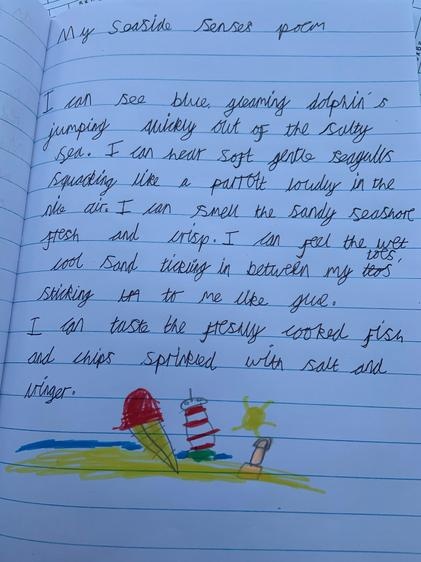 My Seaside Senses poem
I can see blue, gleaming dolphin's
jumping quickly out of the salty
sea. I can hear soft gentle seagulls
squacking like a parrot loudly in the
air. I can smell the sandy seashore
fresh and crisp. I can feel the wet
cool sand tickling in between my toes,
sticking to me like glue.
I can taste the freshly cooked fish
and chips sprinkled with salt and
vinger.